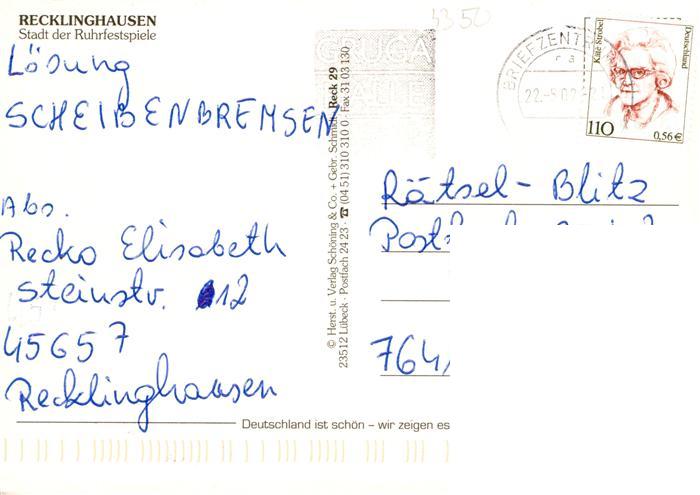 RECKLINGHAUSEN
Stadt der Ruhrfestspiele
Lösung
SCHEIBENBREMSEN
Abs.
Recko Elisabeth
Steinstr. 12
45657
Recklinghausen
© Herst. u. Verlag Schöning & Co. + Gebr. Schmidt Reck 29
23512 Lübeck · Postfach 24 23 · ☎ (04 51) 310 310 0 · Fax 31 03 130
Deutschland ist schön – wir zeigen es
3350
GRUGA
BRIEFZENTR
22.-8.02
Käte Strobel
Deutschland
110
0,56 €
Rätsel-Blitz
764